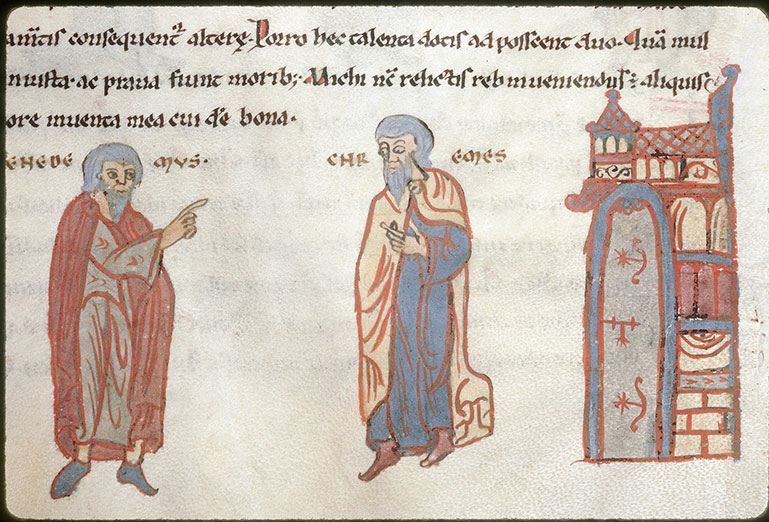 consequent altere. Porro hec talenta dotis ad posse͞ent duo. Quā mul
iniusta. ac praua fiunt morib; Michi nē relictis reb inueniendus ē aliquis
ore inuenta mea cui dē bona.
EHEDE MVS. CHR EMES